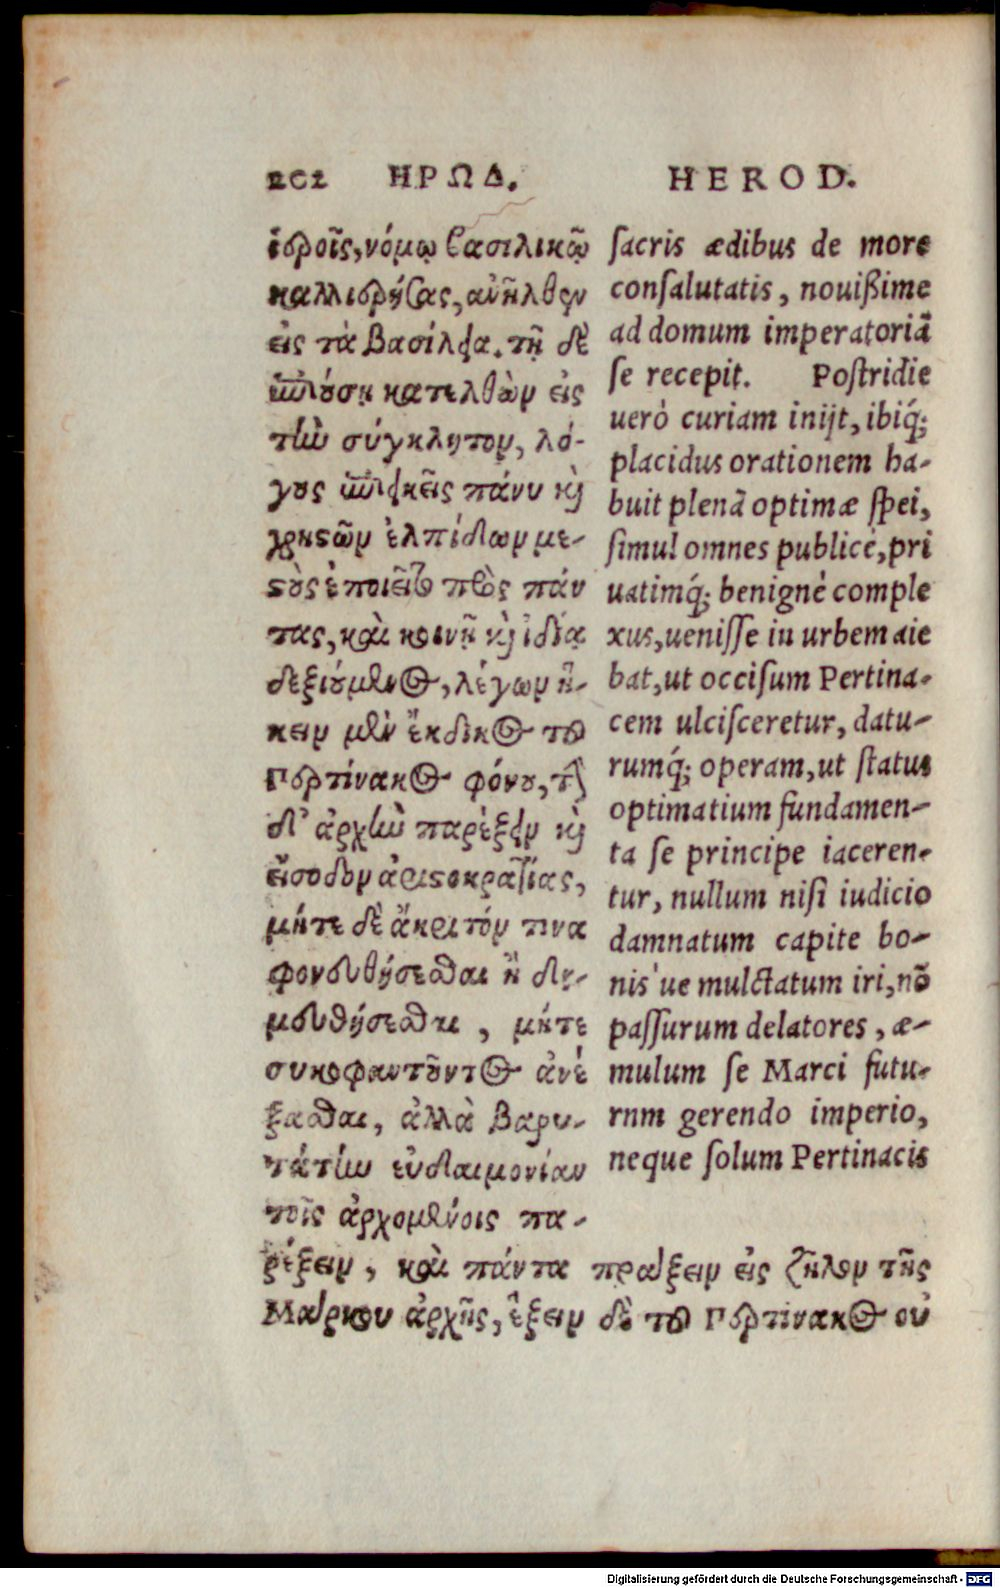 202 ΗΡΩΔ. HEROD.
ἱεροῖς, νόμῳ βασιλικῷ
καλλιερήσας, ἀνῆλθεν
εἰς τὰ βασίλεια. τῇ δὲ
ἐπιούσῃ κατελθὼν εἰς
τὴν σύγκλητον, λό-
γους ἐπιεικεῖς πάνυ καὶ
χρηστῶν ἐλπίδων με-
στοὺς ἐποιεῖτο πρὸς πάν
τας, καὶ κοινῇ καὶ ἰδίᾳ
δεξιούμενος, λέγων ἥ-
κειν μὲν ἔκδικος τοῦ
Περτίνακος φόνου, τὴν
δ' ἀρχὴν παρέξειν καὶ
εἴσοδον ἀριστοκρατίας,
μήτε δὲ ἄκριτόν τινα
φονευθήσεσθαι ἢ δη-
μευθήσεσθαι, μήτε
συκοφαντοῦντος ἀνέ
ξασθαι, ἀλλὰ βαθυ-
τάτην εὐδαιμονίαν
τοῖς ἀρχομένοις πα-
ρέξειν, καὶ πάντα πράξειν εἰς ζῆλον τῆς
Μάρκου ἀρχῆς, ἕξειν δὲ τοῦ Περτίνακος οὐ
sacris ædibus de more
consalutatis, nouißime
ad domum imperatoriã
se recepit. Postridie
uerò curiam inijt, ibiq́;
placidus orationem ha-
buit plenã optimæ spei,
simul omnes publicè, pri
uatimq́; benignè comple
xus, uenisse in urbem aie
bat, ut occisum Pertina-
cem ulcisceretur, datu-
rumq́; operam, ut status
optimatium fundamen-
ta se principe iaceren-
tur, nullum nisi iudicio
damnatum capite bo-
nis'ue mulctatum iri, nõ
passurum delatores, æ-
mulum se Marci futu-
rnm gerendo imperio,
neque solum Pertinacis
Digitalisierung gefördert durch die Deutsche Forschungsgemeinschaft - DFG